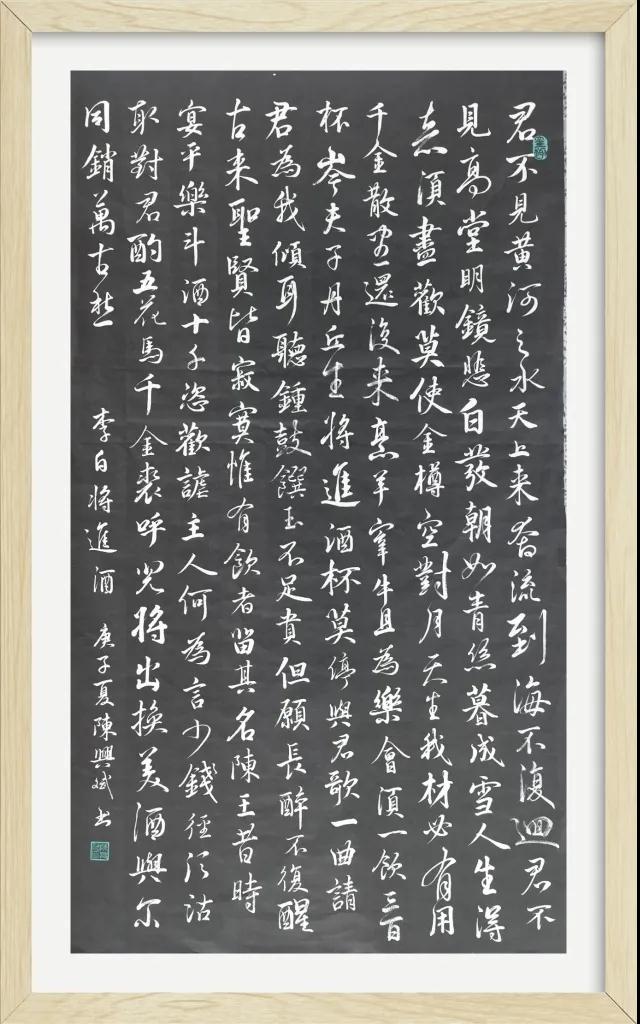 君不見黃河之水天上来奔流到海不復迴君不
見高堂明鏡悲白發朝如青絲暮成雪人生得
意須盡歡莫使金樽空對月天生我材必有用
千金散盡還復来烹羊宰牛且為樂會須一飲三百
杯岑夫子丹丘生將進酒杯莫停與君歌一曲請
君為我傾耳聽鍾鼓饌玉不足貴但願長醉不復醒
古来聖賢皆寂寞惟有飲者留其名陳王昔時
宴平樂斗酒十千恣歡謔主人何為言少錢徑須沽
取對君酌五花馬千金裘呼兒將出換美酒與尔
同銷萬古愁 李白將進酒 庚子夏陳興斌书